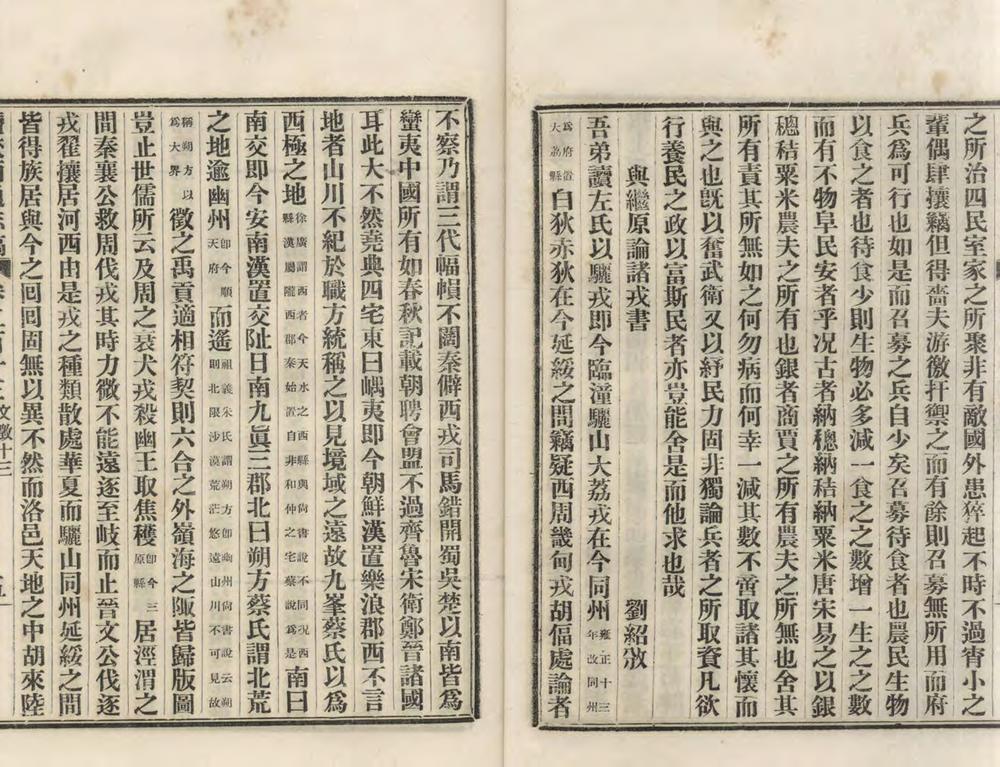 之所治四民室家之所聚非有敵國外患猝起不時不過宵小之
輩偶肆攘竊但得嗇夫游徼扞禦之而有餘則召募無所用而府
兵爲可行也如是而召募之兵自少矣召募待食者也農民生物
以食之者也待食少則生物必多減一食之之數增一生之之數
而有不物阜民安者乎况古者納緫納秸納粟米唐宋易之以銀
緫秸粟米農夫之所有也銀者商賈之所有農夫之所無也舍其
所有責其所無如之何勿病而何幸一減其數不啻取諸其懷而
與之也既以奮武衛又以紓民力固非獨論兵者之所取資凡欲
行養民之政以富斯民者亦豈能舍是而他求也哉
與繼原論諸戎書 劉紹攽
吾弟讀左氏以驪戎即今臨潼驪山大荔戎在今同州雍正十三年改同州
爲府置大荔縣白狄赤狄在今延綏之間竊疑西周畿甸戎胡偪處論者
不察乃謂三代幅幀不闊秦僻西戎司馬錯開蜀吳楚以南皆爲
蠻夷中國所有如春秋記載朝聘會盟不過齊魯宋衛鄭晉諸國
耳此大不然堯典四宅東曰嵎夷即今朝鮮漢置樂浪郡西不言
地者山川不紀於職方統稱之以見境域之遠故九峯蔡氏以爲
西極之地徐廣謂西者今天水之西縣與尙書說不同况西縣漢屬隴西郡秦始置自非和仲之宅蔡說爲是南曰
南交即今安南漢置交阯日南九眞三郡北曰朔方蔡氏謂北荒
之地逾幽州卽今順天府而遙祖義朱氏謂朔方卽幽州尙書說云朔則北限沙漠荒茫悠遠山川不可見故
稱朔方以爲大界徵之禹貢適相符契則六合之外嶺海之陬皆歸版圖
豈止世儒所云及周之衰犬戎殺幽王取焦穫卽今三原縣居涇渭之
間秦襄公救周伐戎其時力微不能遠逐至岐而止晉文公伐逐
戎翟攘居河西由是戎之種類散處華夏而驪山同州延綏之間
皆得族居與今之回回固無以異不然而洛邑天地之中胡來陸